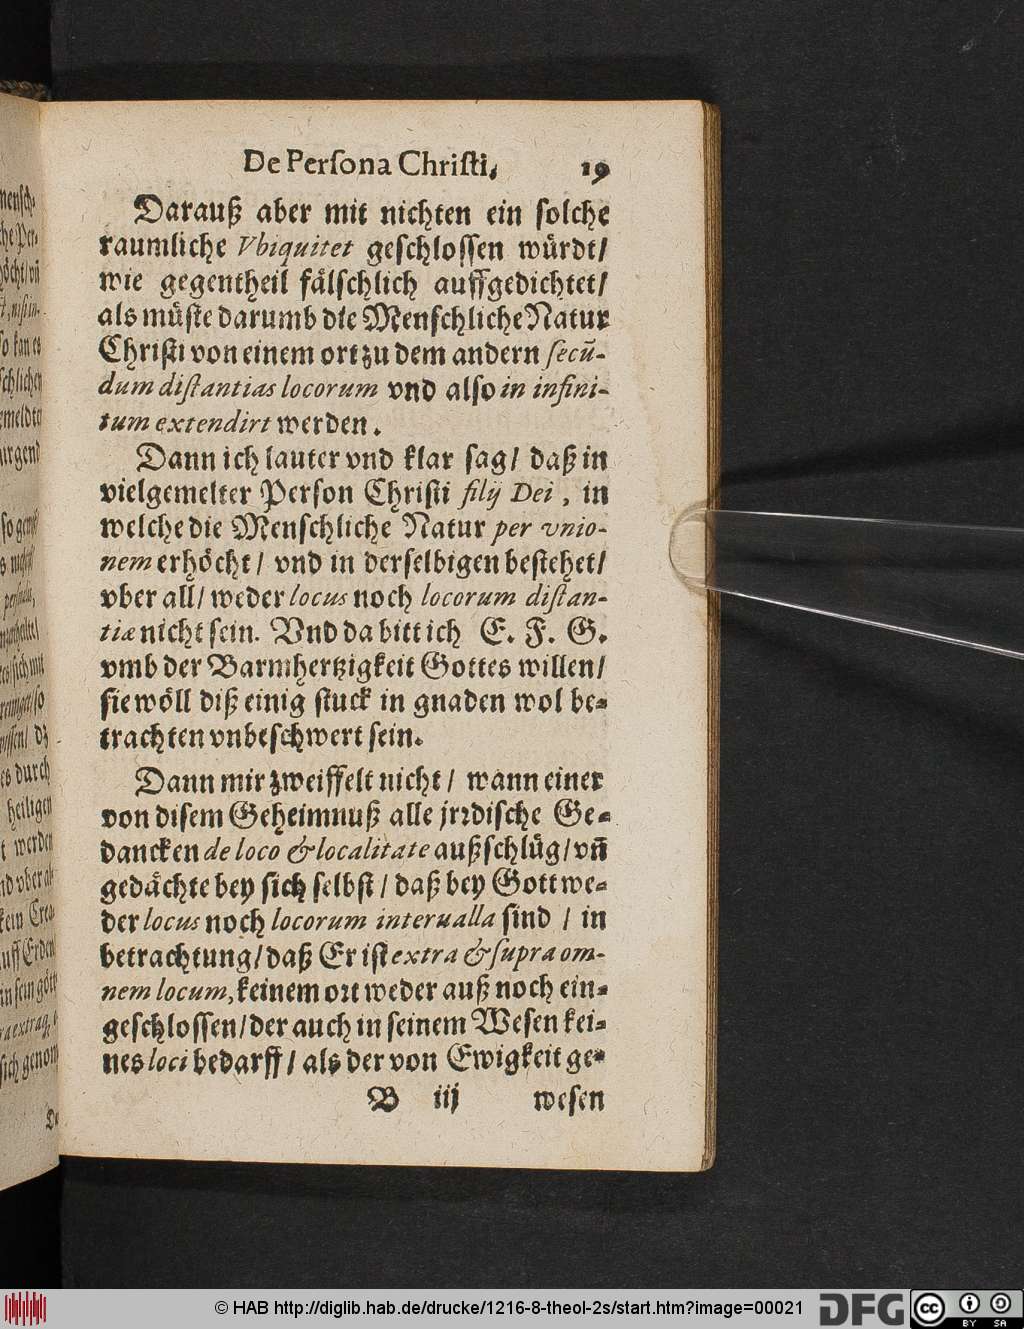 De Perſona Chriſti, 19
Darauß aber mit nichten ein ſolche
raumliche Vbiquitet geſchloſſen würdt/
wie gegentheil fälſchlich auffgedichtet/
als müſte darumb die Menſchliche Natur
Chriſti von einem ort zu dem andern ſecũ-
dum diſtantias locorum vnd alſo in infini-
tum extendirt werden.
Dann ich lauter vnd klar ſag/ daß in
vielgemelter Perſon Chriſti filij Dei, in
welche die Menſchliche Natur per vnio-
nem erhöcht/ vnd in derſelbigen beſtehet/
vber all/ weder locus noch locorum diſtan-
tiæ nicht ſein. Vnd da bitt ich E. F. G.
vmb der Barmhertzigkeit Gottes willen/
ſie wöll diß einig ſtuck in gnaden wol be-
trachten vnbeſchwert ſein.
Dann mir zweiffelt nicht/ wann einer
von diſem Geheimnuß alle jrrdiſche Ge-
dancken de loco & localitate außſchlüg/ vñ
gedächte bey ſich ſelbſt/ daß bey Gott we-
der locus noch locorum interualla ſind/ in
betrachtung/ daß Er iſt extra & ſupra om-
nem locum, keinem ort weder auß noch ein-
geſchloſſen/ der auch in ſeinem Weſen kei-
nes loci bedarff/ als der von Ewigkeit ge-
B iij weſen
© HAB http://diglib.hab.de/drucke/1216-8-theol-2s/start.htm?image=00021
DFG
cc BY SA